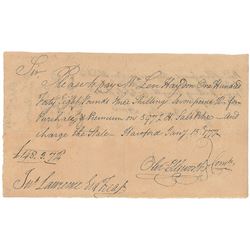 Sir
Please to pay Mr Len Haydon One Hundred
Forty Eight Pounds Nine Shillings Seven pence for
Purchase & Premium on 5972 lb Salt Petre — And
Charge the State Hartford Jany 13th 177
£148.9.7
Oliv Ellsworth Comtte
Jno Lawrence Esqr Treasr